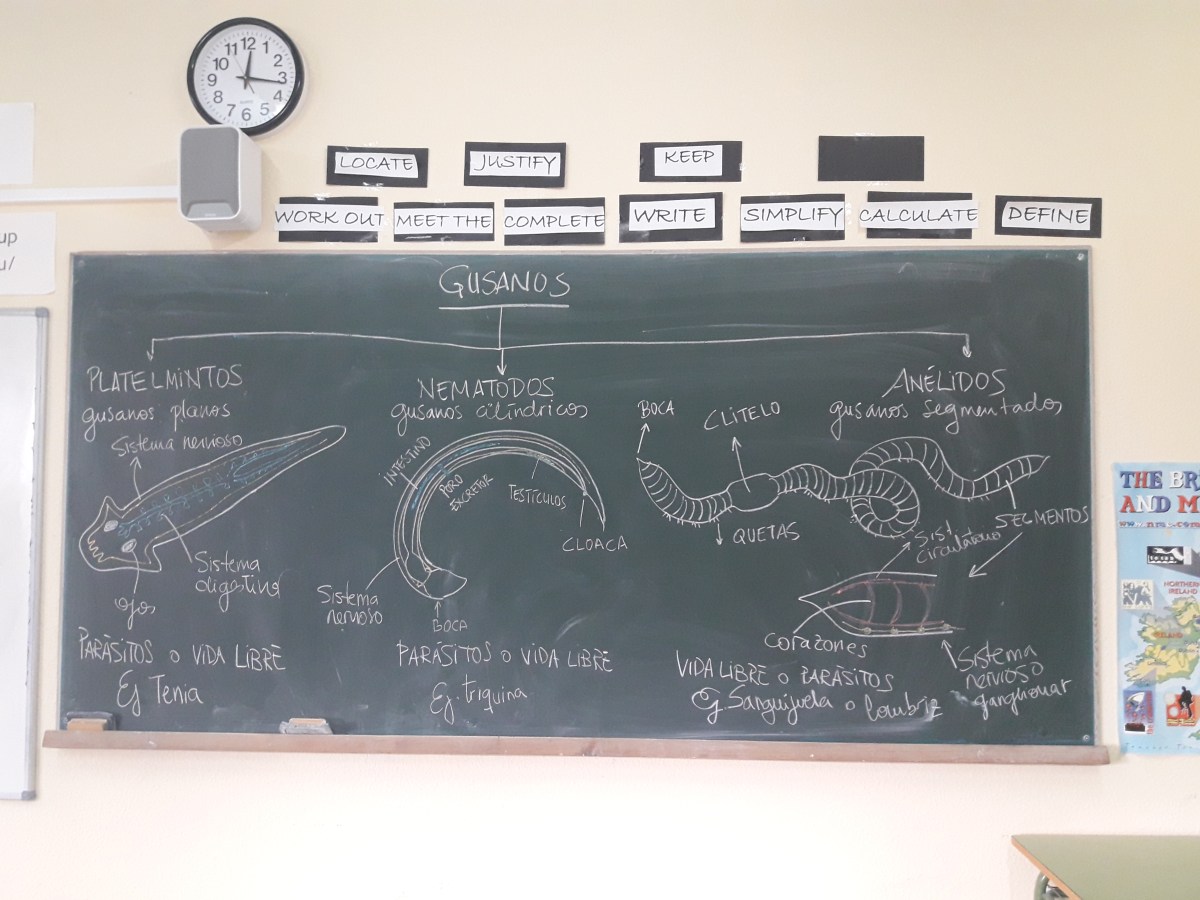 11 12 1
10 2
9 3
8 4
7 6 5
LOCATE
JUSTIFY
KEEP
WORK OUT
MEET THE
COMPLETE
WRITE
SIMPLIFY
CALCULATE
DEFINE
up
u/
GUSANOS
PLATELMINTOS
gusanos planos
Sistema nervioso
Sistema
digestivo
ojos
PARÁSITOS o VIDA LIBRE
Ej Tenia
NEMATODOS
gusanos cilíndricos
INTESTINO
PORO
EXCRETOR
TESTÍCULOS
CLOACA
Sistema
nervioso
BOCA
PARÁSITOS o VIDA LIBRE
Ej. triquina
ANÉLIDOS
gusanos segmentados
BOCA
CLITELO
QUETAS
SEGMENTOS
Sist.
circulatorio
corazones
Sistema
nervioso
ganglionar
VIDA LIBRE o PARÁSITOS
Ej. Sanguijuela o lombriz
THE BR
AND M
NORTHERN
IRELAND
IRELAND